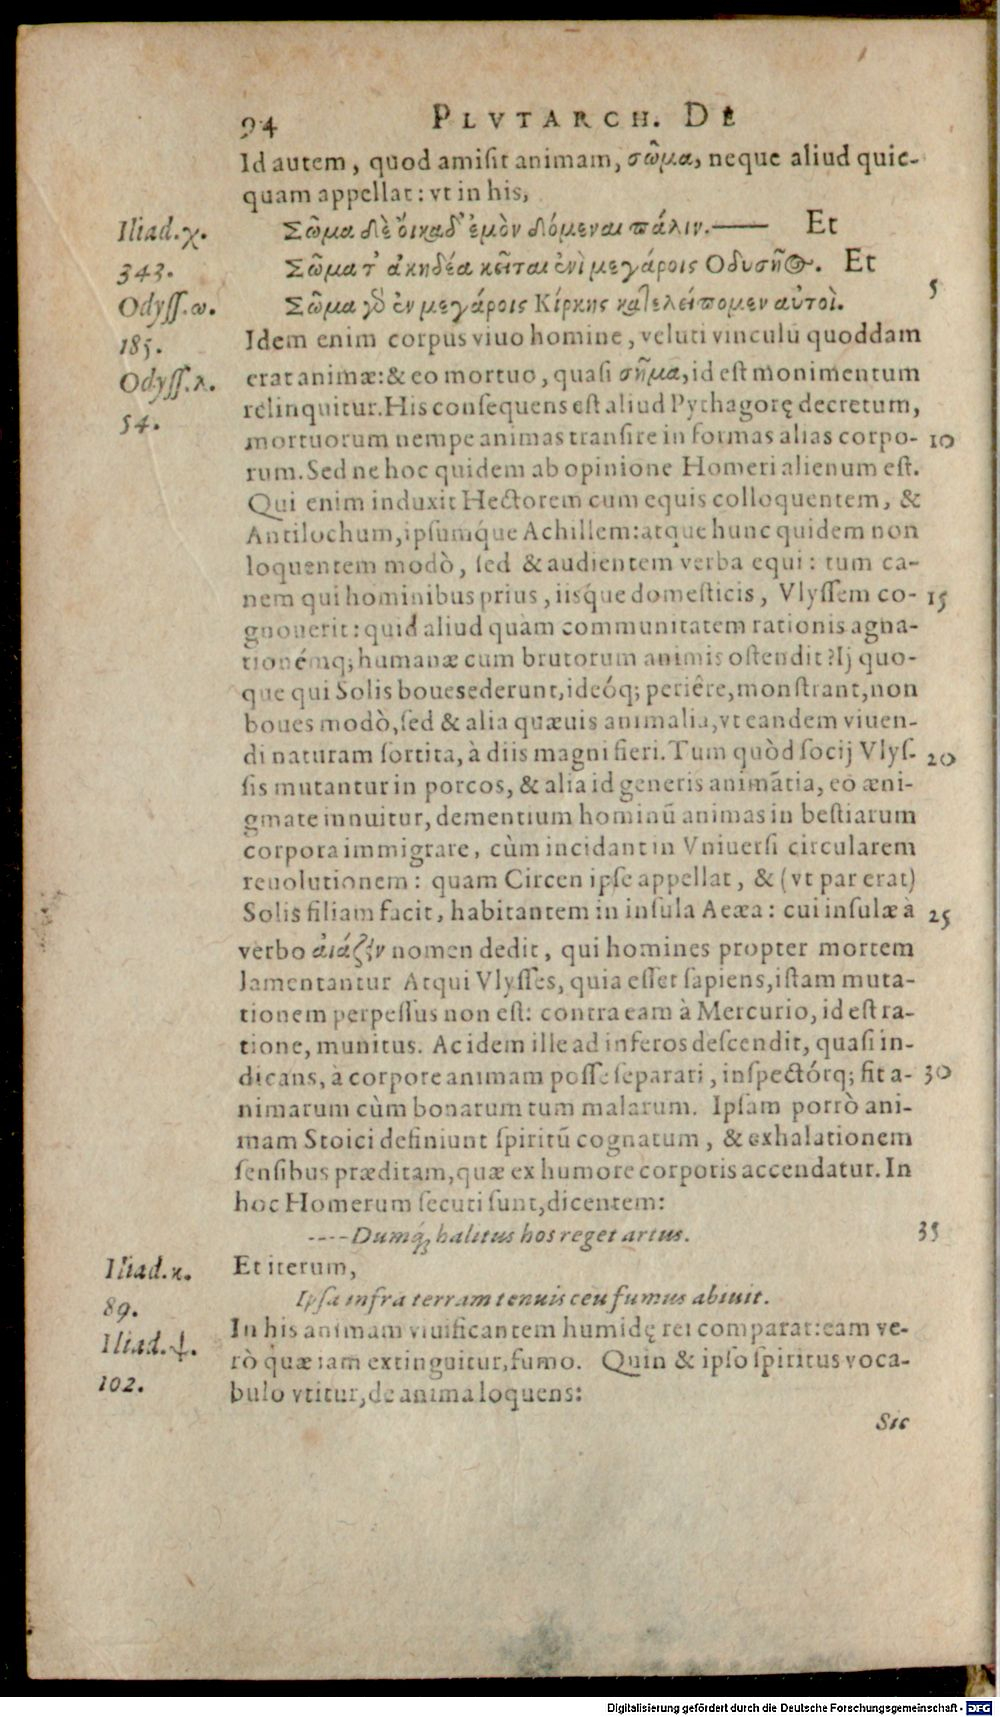 94 PLVTARCH. DE
Id autem, quod amisit animam, σῶμα, neque aliud quic-
quam appellat: vt in his,
Iliad. χ. 343.
Σῶμα δὲ οἴκαδ' ἐμὸν δόμεναι πάλιν.—— Et
Odyss. ω. 185.
Σῶμα τ' ἀκηδέα κεῖται ἐνὶ μεγάροις Οδυσῆος. Et
Odyss. λ. 54.
Σῶμα γὸ ἐν μεγάροις Κίρκης κατελείπομεν αὐτοὶ. 5
Idem enim corpus viuo homine, veluti vinculū quoddam
erat animæ: & eo mortuo, quasi σῆμα, id est monimentum
relinquitur. His consequens est aliud Pythagorę decretum,
mortuorum nempe animas transire in formas alias corpo- 10
rum. Sed ne hoc quidem ab opinione Homeri alienum est.
Qui enim induxit Hectorem cum equis colloquentem, &
Antilochum, ipsumq́ue Achillem: atque hunc quidem non
loquentem modò, sed & audientem verba equi: tum ca-
nem qui hominibus prius, iisq́ue domesticis, Vlyssem co- 15
gnouerit: quid aliud quàm communitatem rationis agna-
tionémq; humanæ cum brutorum animis ostendit? Ij quo-
que qui Solis boues ederunt, ideóq; periêre, monstrant, non
boues modò, sed & alia quæuis animalia, vt eandem viuen-
di naturam sortita, à diis magni fieri. Tum quòd socij Vlys- 20
sis mutantur in porcos, & alia id generis animātia, eo æni-
gmate innuitur, dementium hominū animas in bestiarum
corpora immigrare, cùm incidant in Vniuersi circularem
reuolutionem: quam Circen ipse appellat, & (vt par erat)
Solis filiam facit, habitantem in insula Aeæa: cui insulæ à 25
verbo αἰάζειν nomen dedit, qui homines propter mortem
lamentantur Atqui Vlysses, quia esset sapiens, istam muta-
tionem perpessus non est: contra eam à Mercurio, id est ra-
tione, munitus. Ac idem ille ad inferos descendit, quasi in-
dicans, à corpore animam posse separari, inspectórq; fit a- 30
nimarum cùm bonarum tum malarum. Ipsam porrò ani-
mam Stoici definiunt spiritū cognatum, & exhalationem
sensibus præditam, quæ ex humore corporis accendatur. In
hoc Homerum secuti sunt, dicentem:
----Dumq́; halitus hos reget artus. 35
Iliad. κ. 89.
Et iterum,
Ipsa infra terram tenuis ceu fumus abiuit.
Iliad. ψ. 102.
In his animam viuificantem humidę rei comparat: eam ve-
rò quæ iam extinguitur, fumo. Quin & ipso spiritus voca-
bulo vtitur, de anima loquens:
Sic
Digitalisierung gefördert durch die Deutsche Forschungsgemeinschaft - DFG